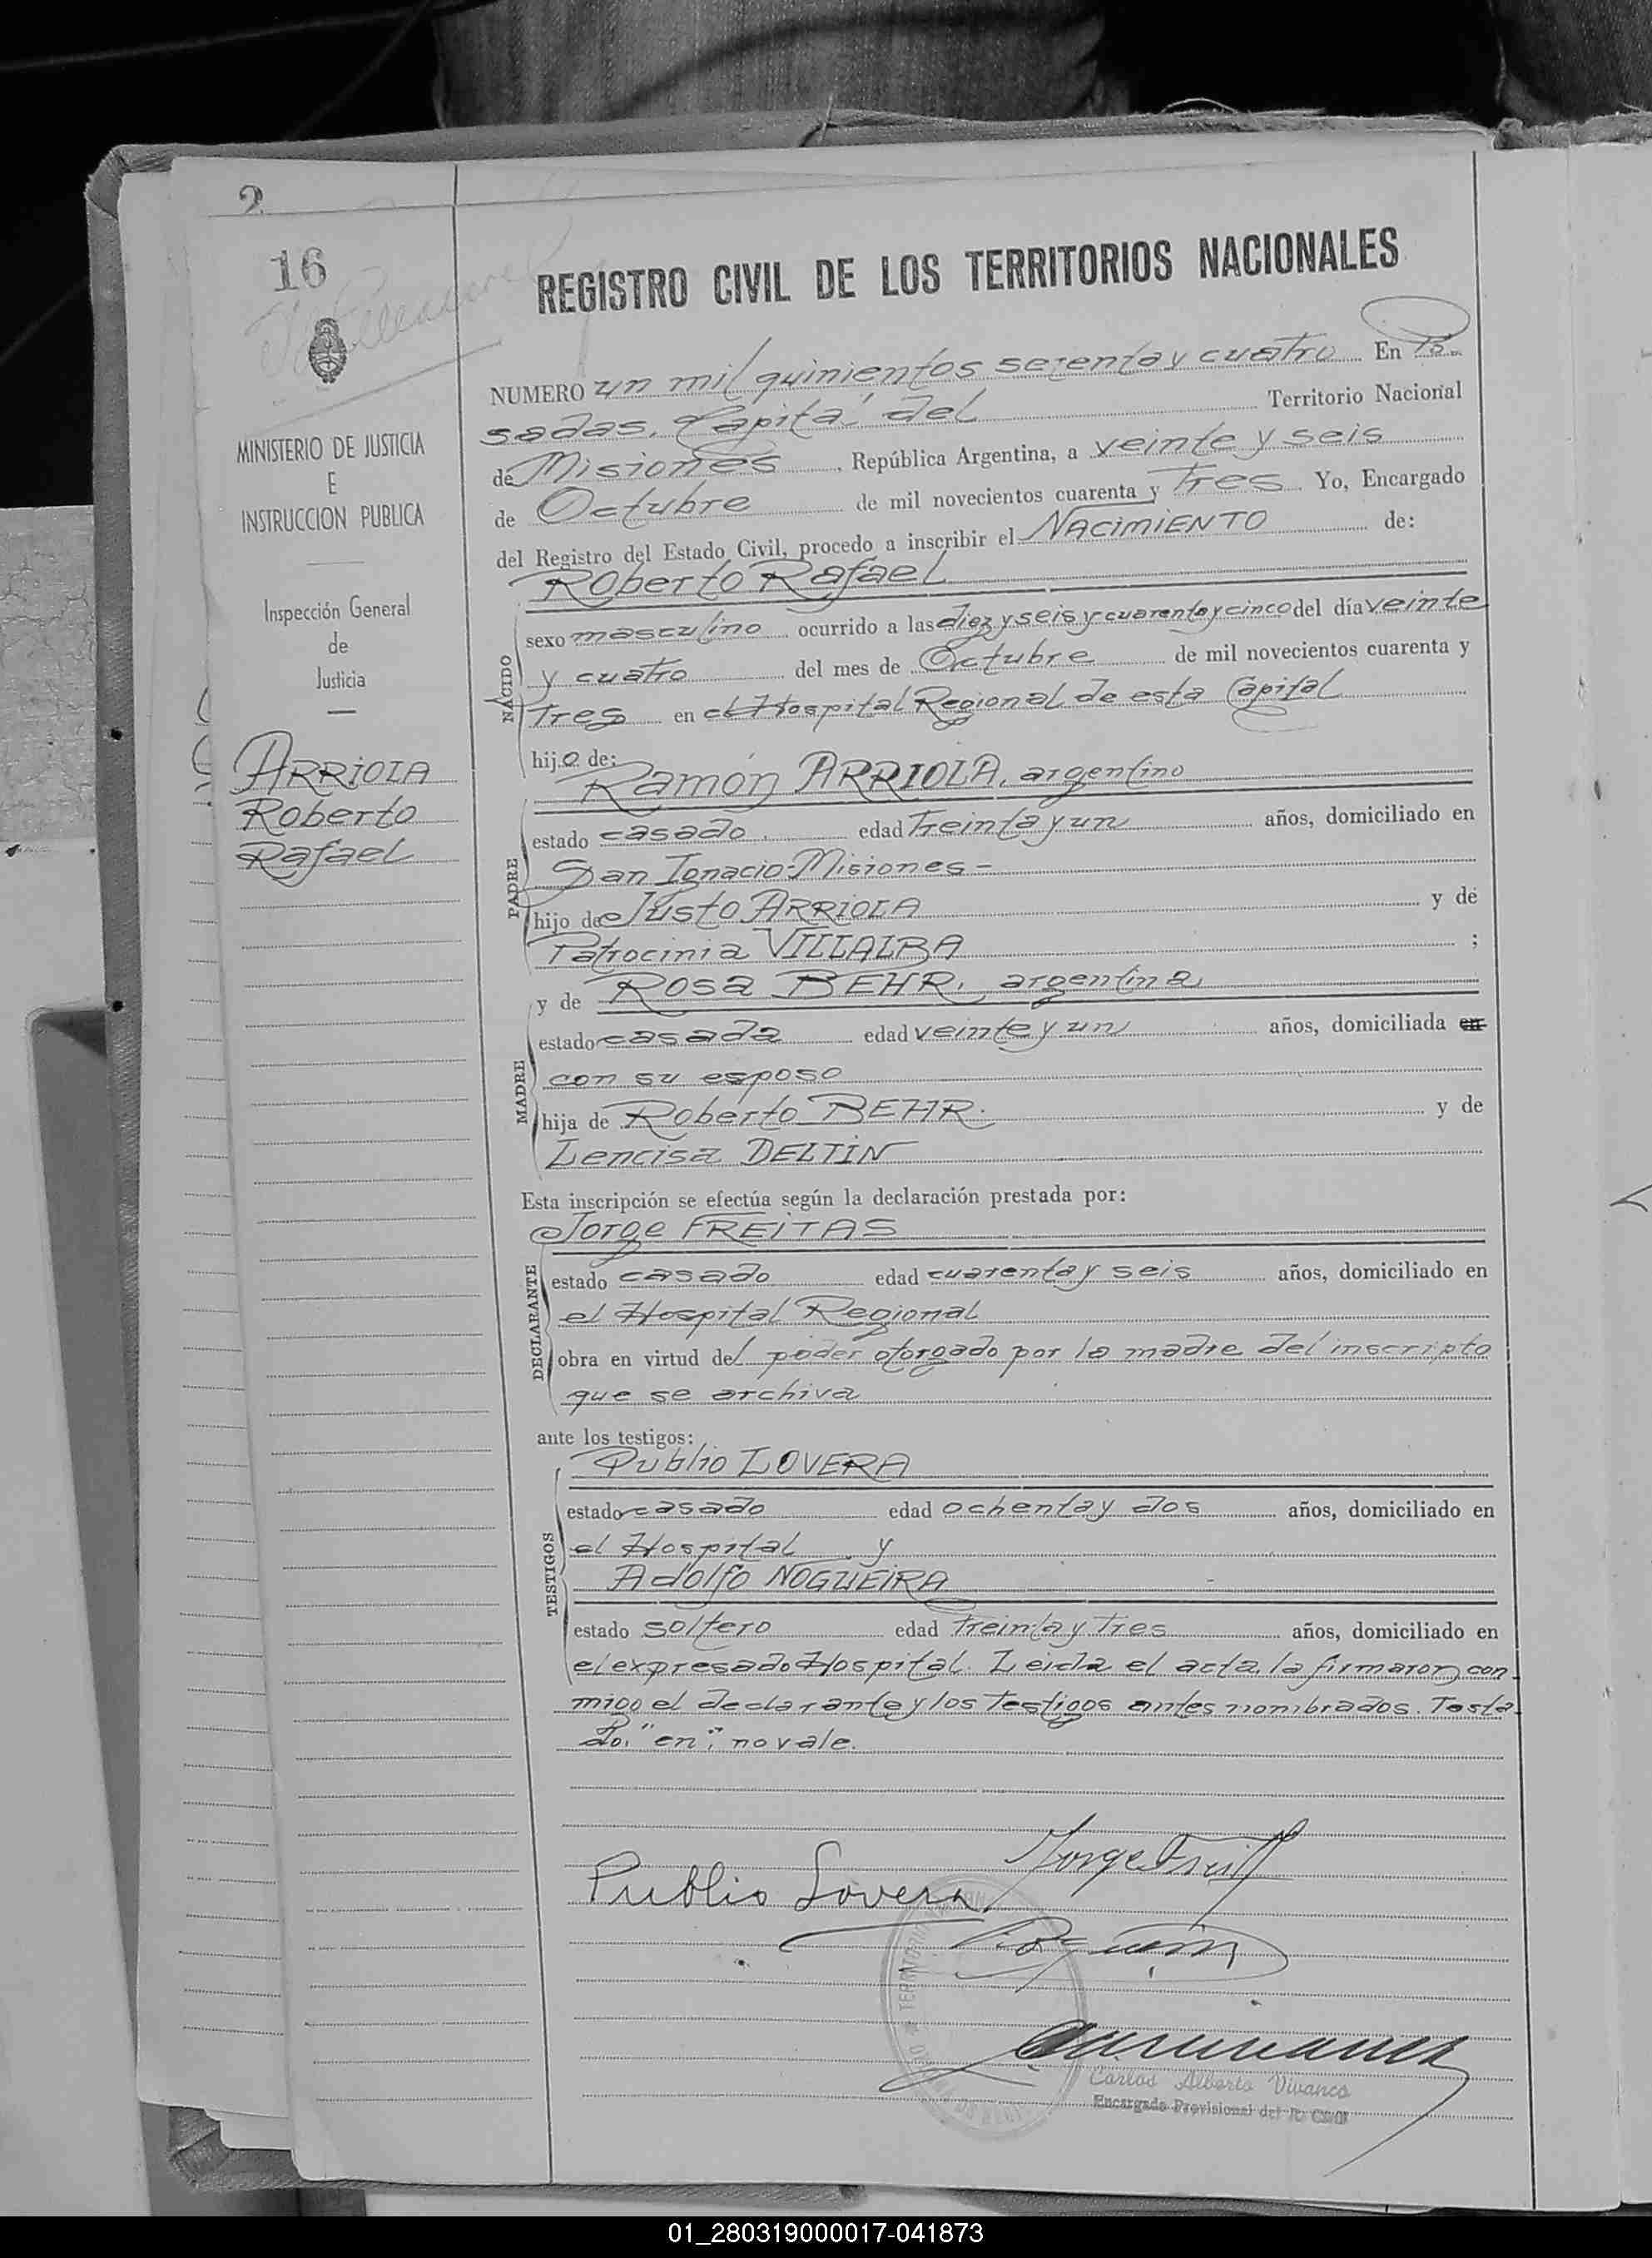 2
16
REGISTRO CIVIL DE LOS TERRITORIOS NACIONALES
NUMERO un mil quinientos setenta y cuatro En Po-
sadas, Capital del Territorio Nacional
de Misiones, República Argentina, a veinte y seis
de Octubre de mil novecientos cuarenta y Tres Yo, Encargado
del Registro del Estado Civil, procedo a inscribir el NACIMIENTO de:
MINISTERIO DE JUSTICIA
E
INSTRUCCION PUBLICA
Inspección General
de
Justicia
ARRIOLA
Roberto
Rafael
NACIDO
Roberto Rafael
sexo masculino ocurrido a las diez y seis y cuarenta y cinco del día veinte
y cuatro del mes de Octubre de mil novecientos cuarenta y
Tres en el Hospital Regional de esta Capital
hijo de:
PADRE
Ramón ARRIOLA, argentino
estado casado, edad Treinta y un años, domiciliado en
San Ignacio Misiones -
hijo de Justo ARRIOLA y de
Patrocinia VILLALBA ;
MADRE
y de Rosa BEHR, argentina
estado casada edad veinte y un años, domiciliada en
con su esposo
hija de Roberto BEHR. y de
Lencisa DELTIN
Esta inscripción se efectúa según la declaración prestada por:
DECLARANTE
Jorge FREITAS
estado casado edad cuarenta y seis años, domiciliado en
el Hospital Regional
obra en virtud del poder otorgado por la madre del inscripto
que se archiva
ante los testigos:
TESTIGOS
Publio LOVERA
estado casado edad ochenta y dos años, domiciliado en
el Hospital y
Adolfo NOGUEIRA
estado soltero edad Treinta y Tres años, domiciliado en
el expresado Hospital. Leida el acta, la firmaron con-
migo el declarante y los Testigos antes nombrados. Testa-
do: "en": no vale.
Publio Lovera
Carlos Alberto Vivanco
Encargado Provisional del R. Civil
01_280319000017-041873